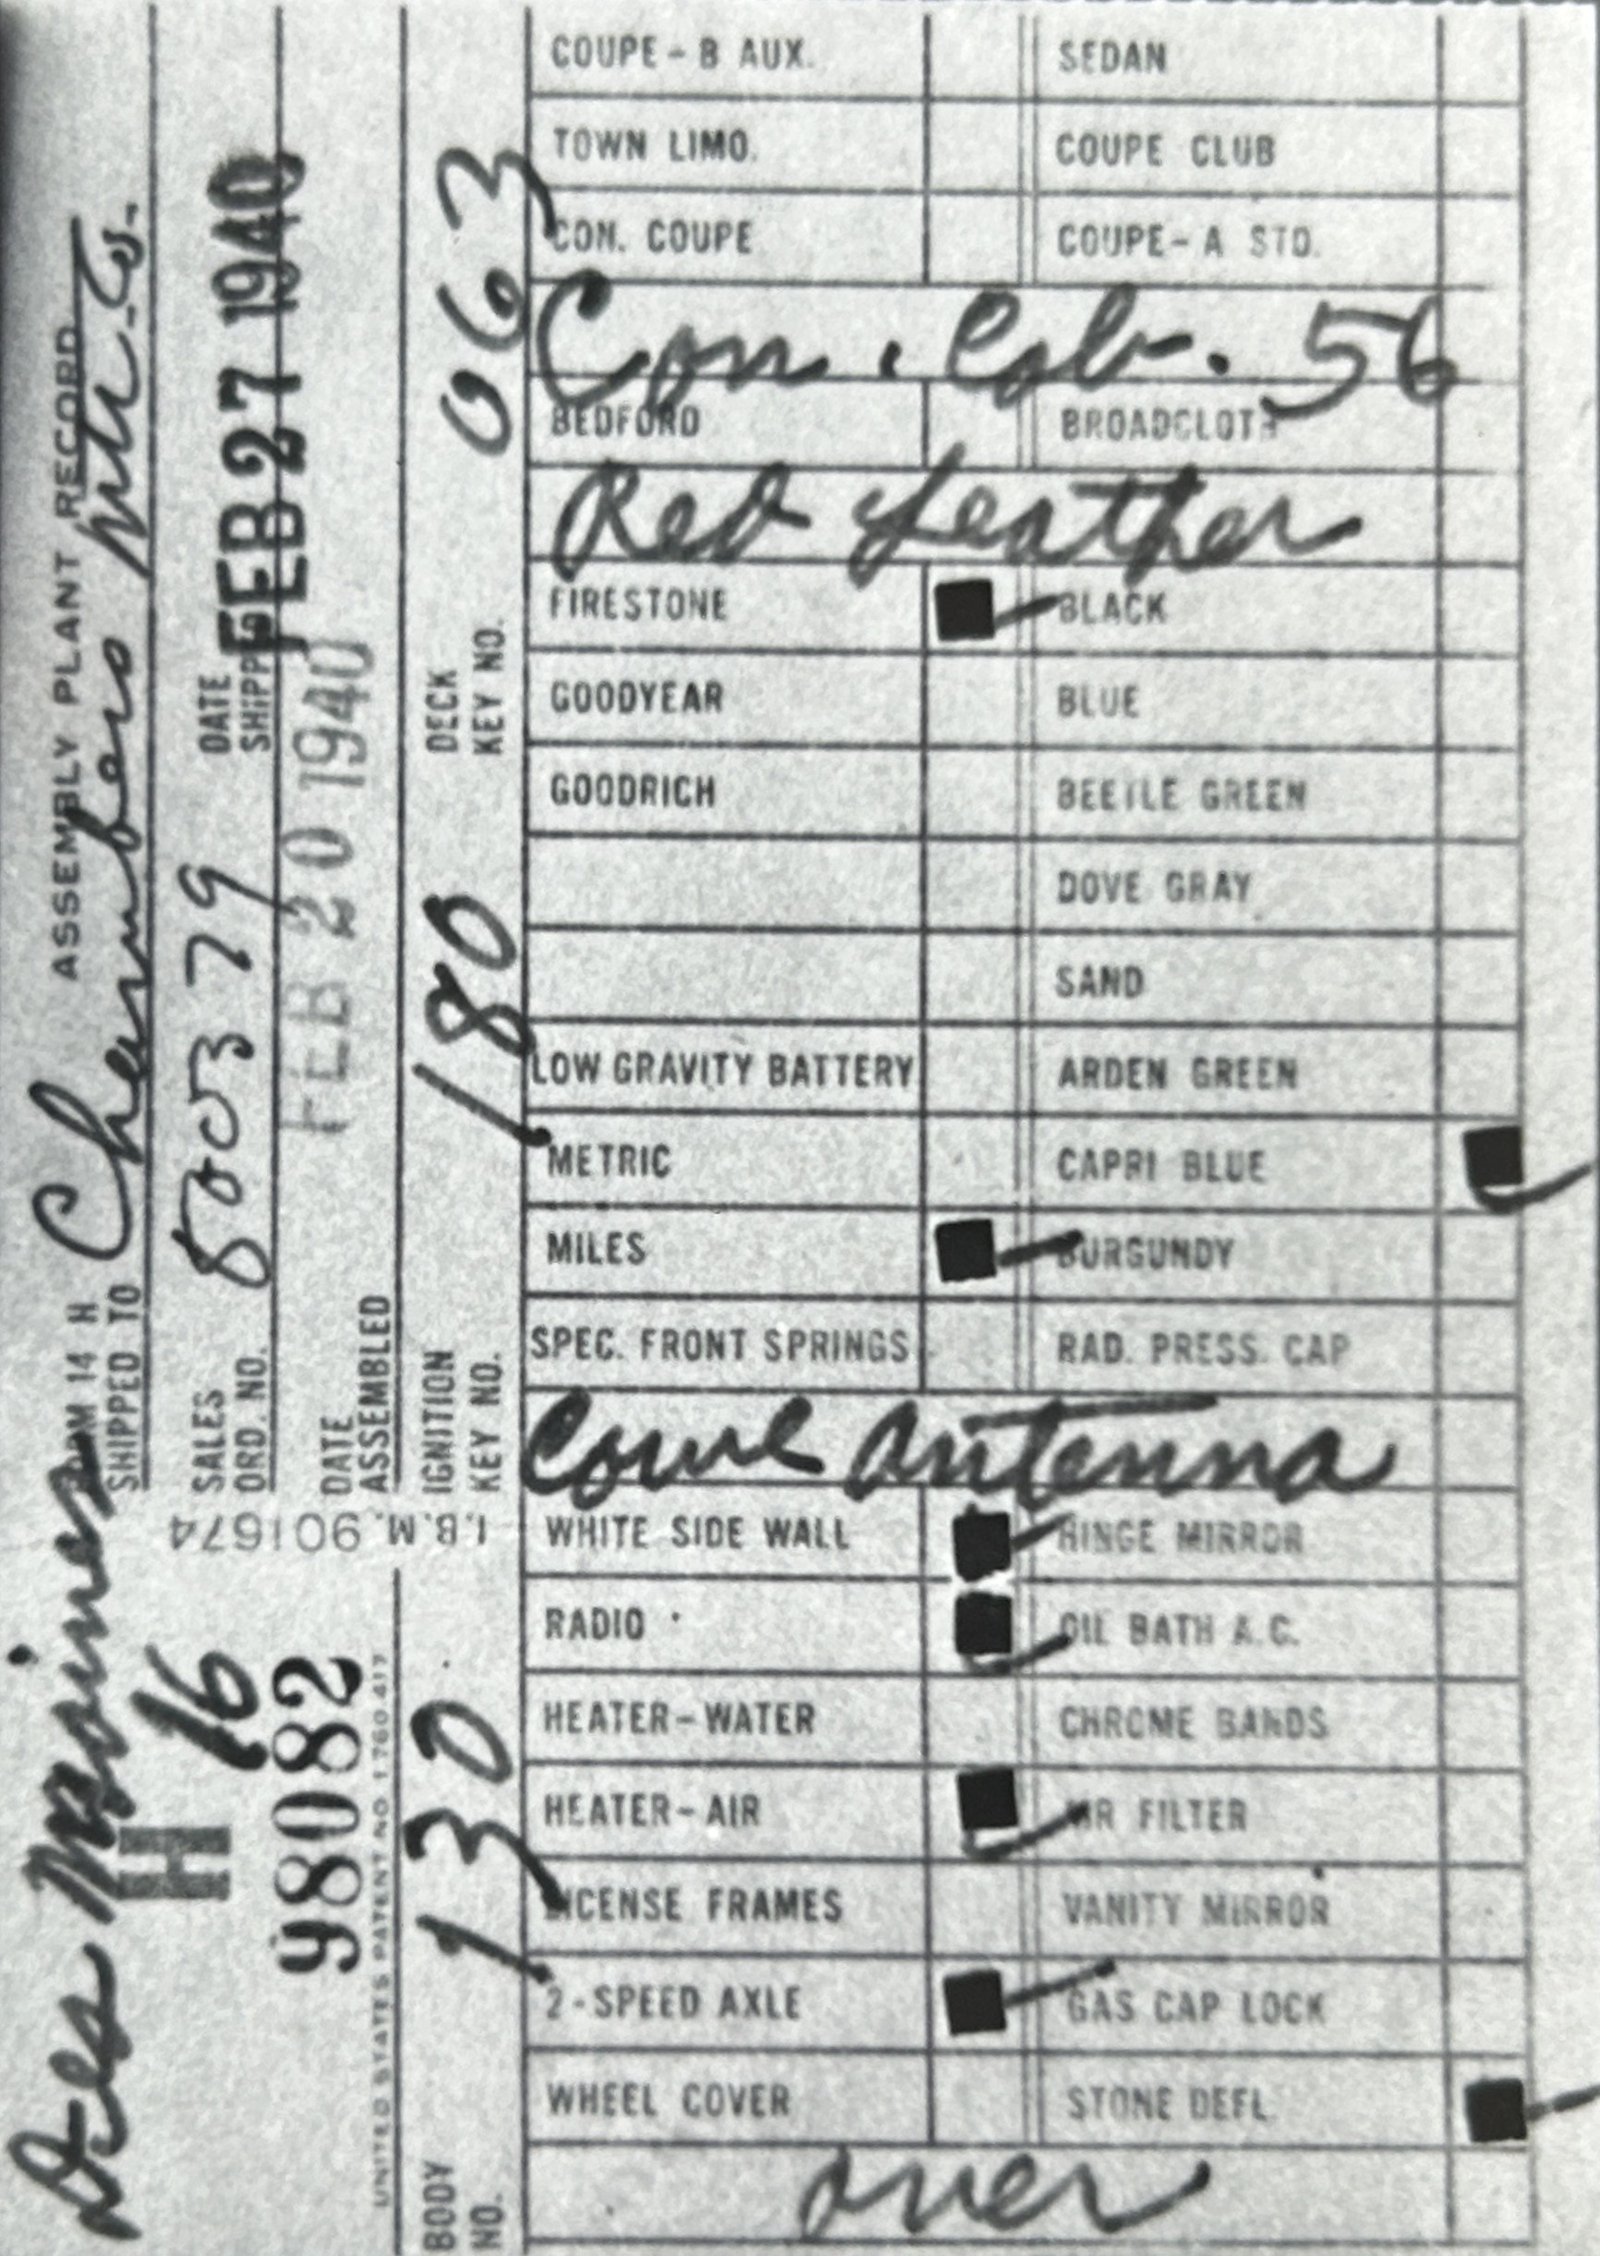 Des Moines
H 16
98082
UNITED STATES PATENT NO. 1760417
BODY NO. 130
I.B.M. 901674
FORM 14 H ASSEMBLY PLANT RECORD
SHIPPED TO Chambers Mtr. Co.
SALES ORD. NO. 50379 DATE SHIPPED FEB 27 1940
DATE ASSEMBLED FEB 20 1940
IGNITION KEY NO. 180 DECK KEY NO. 063
COUPE-B AUX. SEDAN
TOWN LIMO. COUPE CLUB
CON. COUPE COUPE-A STD.
Con. Cab. 56
BEDFORD BROADCLOTH
Red Leather
FIRESTONE BLACK
GOODYEAR BLUE
GOODRICH BEETLE GREEN
DOVE GRAY
SAND
LOW GRAVITY BATTERY ARDEN GREEN
METRIC CAPRI BLUE
MILES BURGUNDY
SPEC. FRONT SPRINGS RAD. PRESS. CAP
Cowl Antenna
WHITE SIDE WALL HINGE MIRROR
RADIO OIL BATH A.C.
HEATER-WATER CHROME BANDS
HEATER-AIR AIR FILTER
LICENSE FRAMES VANITY MIRROR
2-SPEED AXLE GAS CAP LOCK
WHEEL COVER STONE DEFL.
over